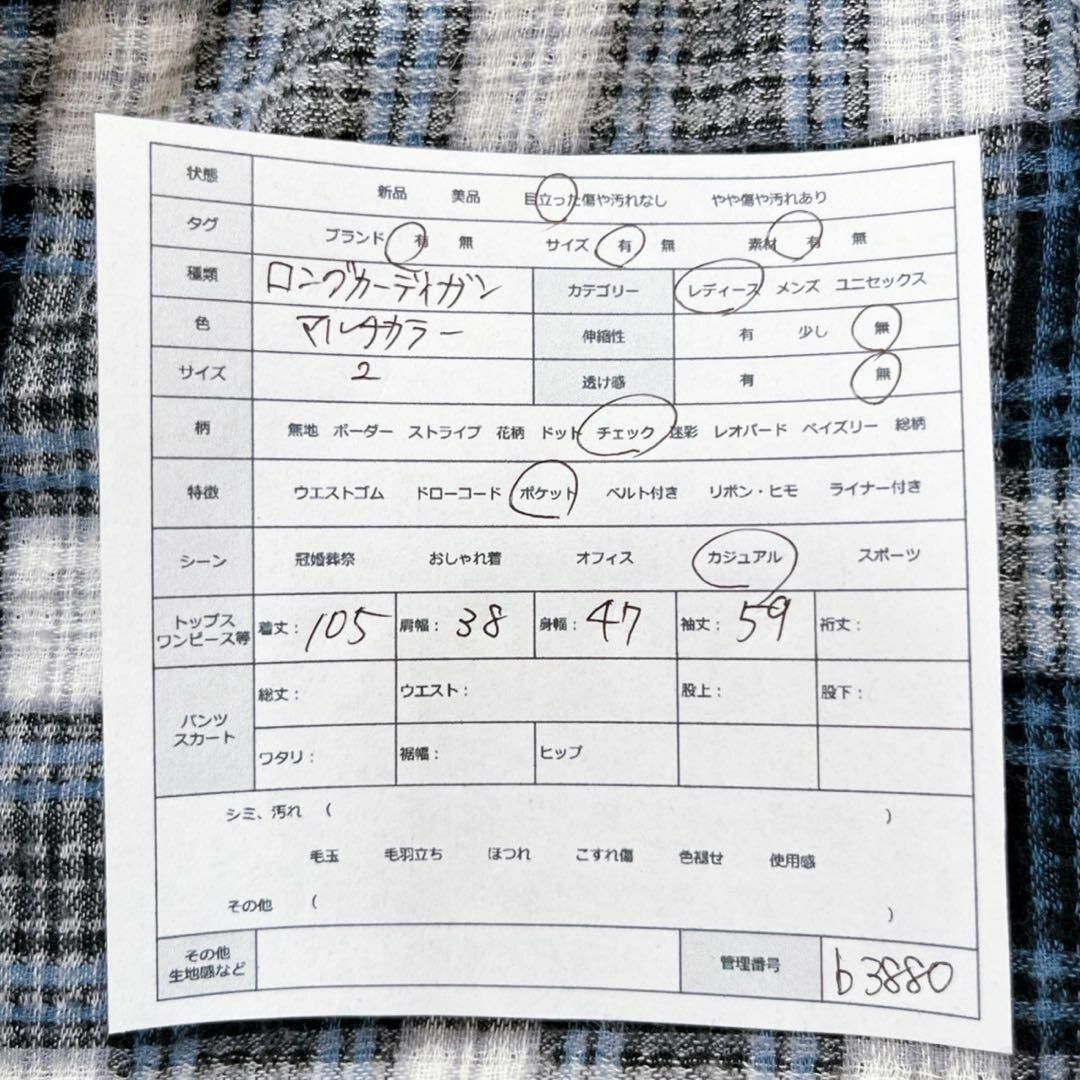 状態 新品 美品 目立った傷や汚れなし やや傷や汚れあり
タグ ブランド 有 無 サイズ 有 無 素材 有 無
種類 ロングカーディガン カテゴリー レディース メンズ ユニセックス
色 マルチカラー 伸縮性 有 少し 無
サイズ 2 透け感 有 無
柄 無地 ボーダー ストライプ 花柄 ドット チェック 迷彩 レオパード ペイズリー 総柄
特徴 ウエストゴム ドローコード ポケット ベルト付き リボン・ヒモ ライナー付き
シーン 冠婚葬祭 おしゃれ着 オフィス カジュアル スポーツ
トップス
ワンピース等 着丈：105 肩幅：38 身幅：47 袖丈：59 裄丈：
パンツ
スカート 総丈： ウエスト： 股上： 股下：
ワタリ： 裾幅： ヒップ
シミ、汚れ （ ）
毛玉 毛羽立ち ほつれ こすれ傷 色褪せ 使用感
その他 （ ）
その他
生地感など 管理番号 b3880